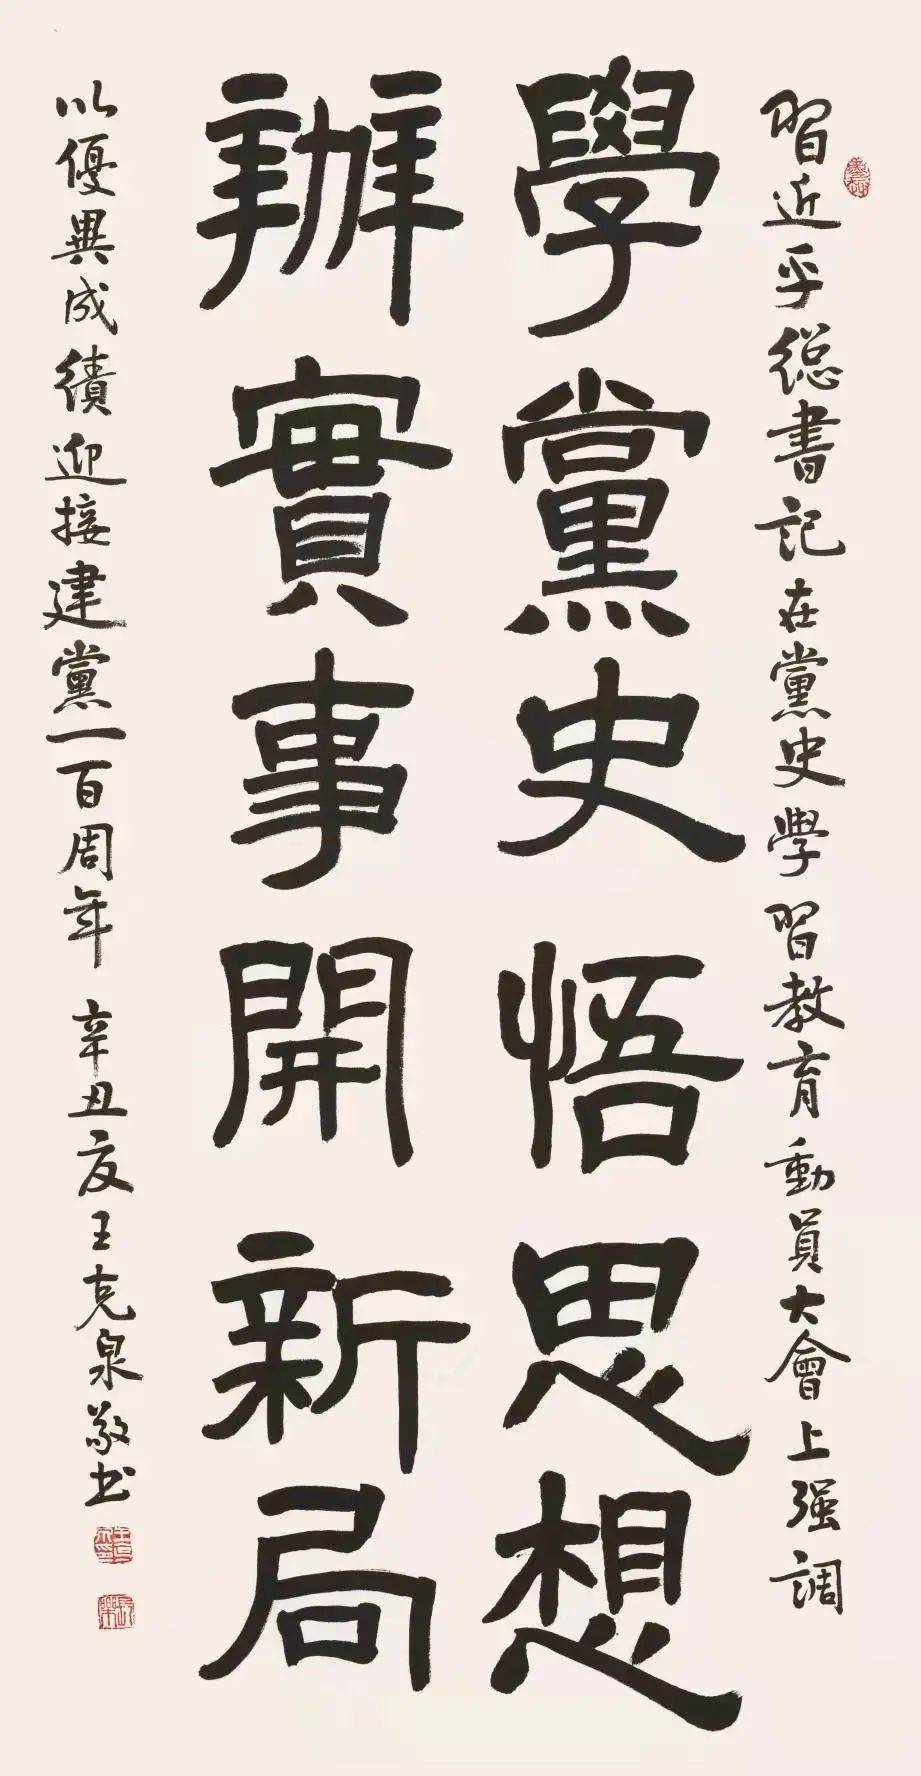 習近平總書記在黨史學習教育動員大會上强調
學黨史悟思想
辦實事開新局
以優異成績迎接建黨一百周年 辛丑夏王克泉敬书